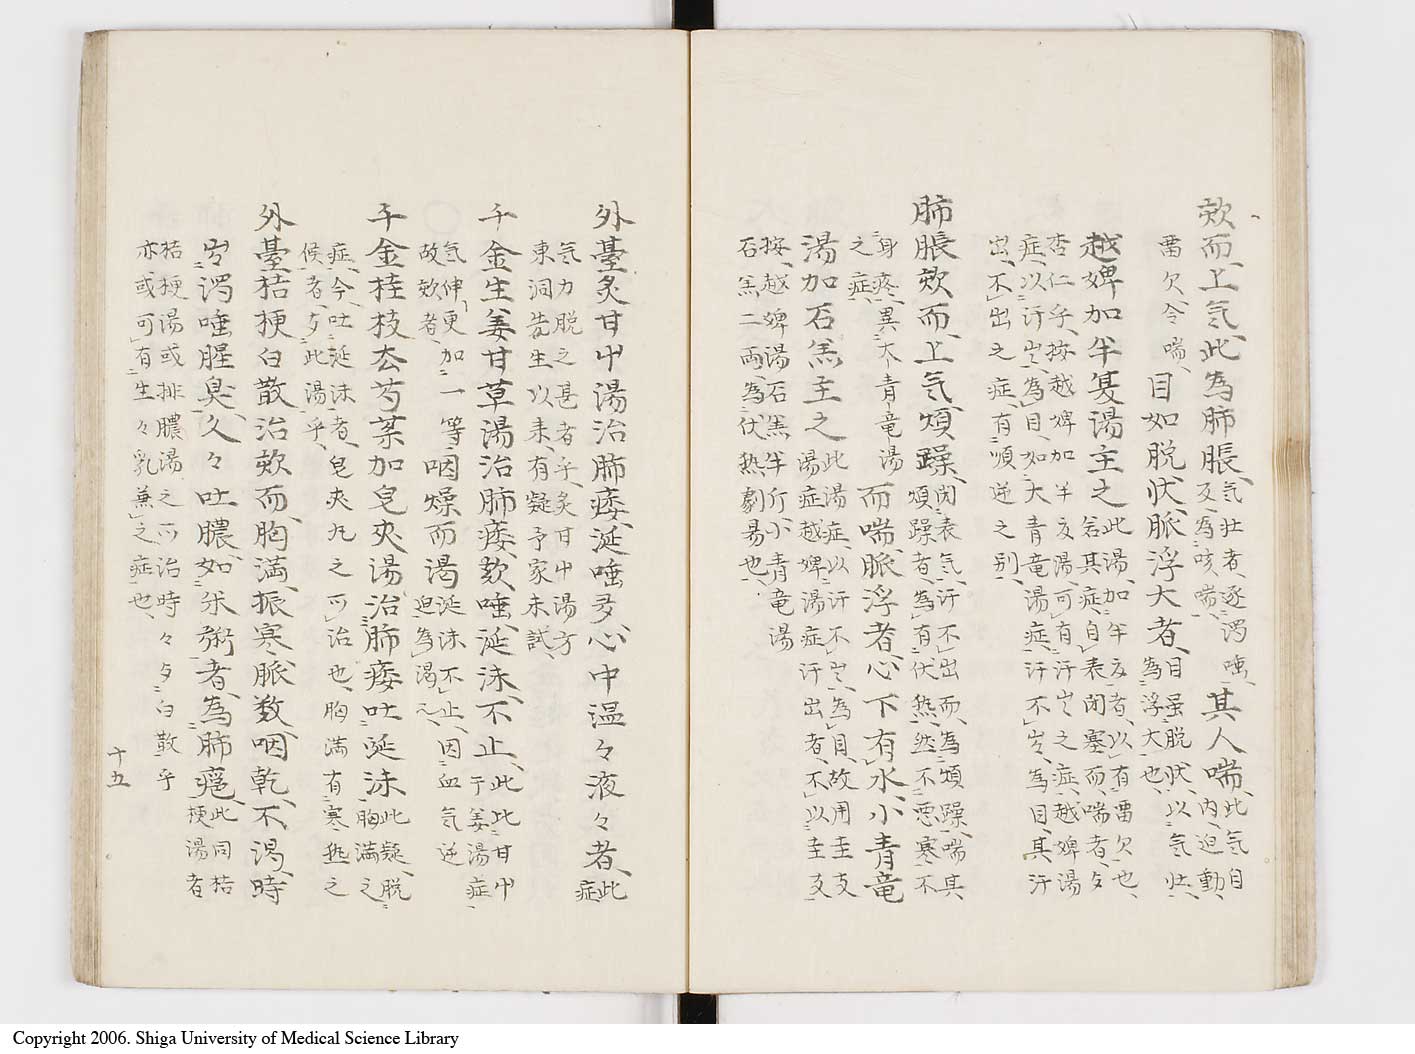 欬而上気、此為肺脹、気壮者、逐濁唾、其人喘、此気自
及為咳喘、内迫動、
畱欠令喘、目如脱状、脈浮大者、目虽脱状、以気壮、
為浮大也、
越婢加半夏湯主之此湯、加半夏者、以有畱欠也、
若其症、自表閉塞而喘者夕
杏仁乎、按越婢加半夏湯、可有汗出之症、越婢湯
症、以汗出、為目、如大青竜湯症、汗不出、為目、其汗
出、不出之症、有順逆之別、
肺脹欬而上気煩躁、閉表気、汗不出而、為煩躁、喘其
煩躁者、為有伏熱、然不悪寒不
身疼、異大青竜湯
之症、
而喘脈浮者、心下有水、小青竜
湯加石羔主之此湯症、以汗不出、為目、故用圭支
湯症越婢湯症汗出者、不以圭支
按、越婢湯石羔半斤小青竜湯
石羔二両、為伏熱劇易也、
外臺炙甘中湯治肺痿涎唾多心中温々液々者、此
症
気力脱之甚者乎、炙甘中湯方
東洞先生以来、有疑予家未試、
千金生姜甘草湯治肺痿、欬、唾、涎沫、不止、此此甘中
于姜湯症、
気伸更加一等、咽燥而渇涎沫不止、因血気逆
故欬者、迫為渇
千金桂枝去芍薬加皂夾湯治肺痿吐涎沫此疑、脱
胸満之
症、今吐涎沫者、皂夾丸之所治也、胸満有寒熱之
候者、夕此湯乎、
外臺桔梗白散治欬而胸満、振寒脈数、咽乾、不渇、時
出濁唾腥臭、久々吐膿、如米粥者、為肺癰、此同桔
梗湯者
桔梗湯或排膿湯之所治時々夕白散乎
亦或可有生々乳兼之症也、
十五
Copyright 2006. Shiga University of Medical Science Library